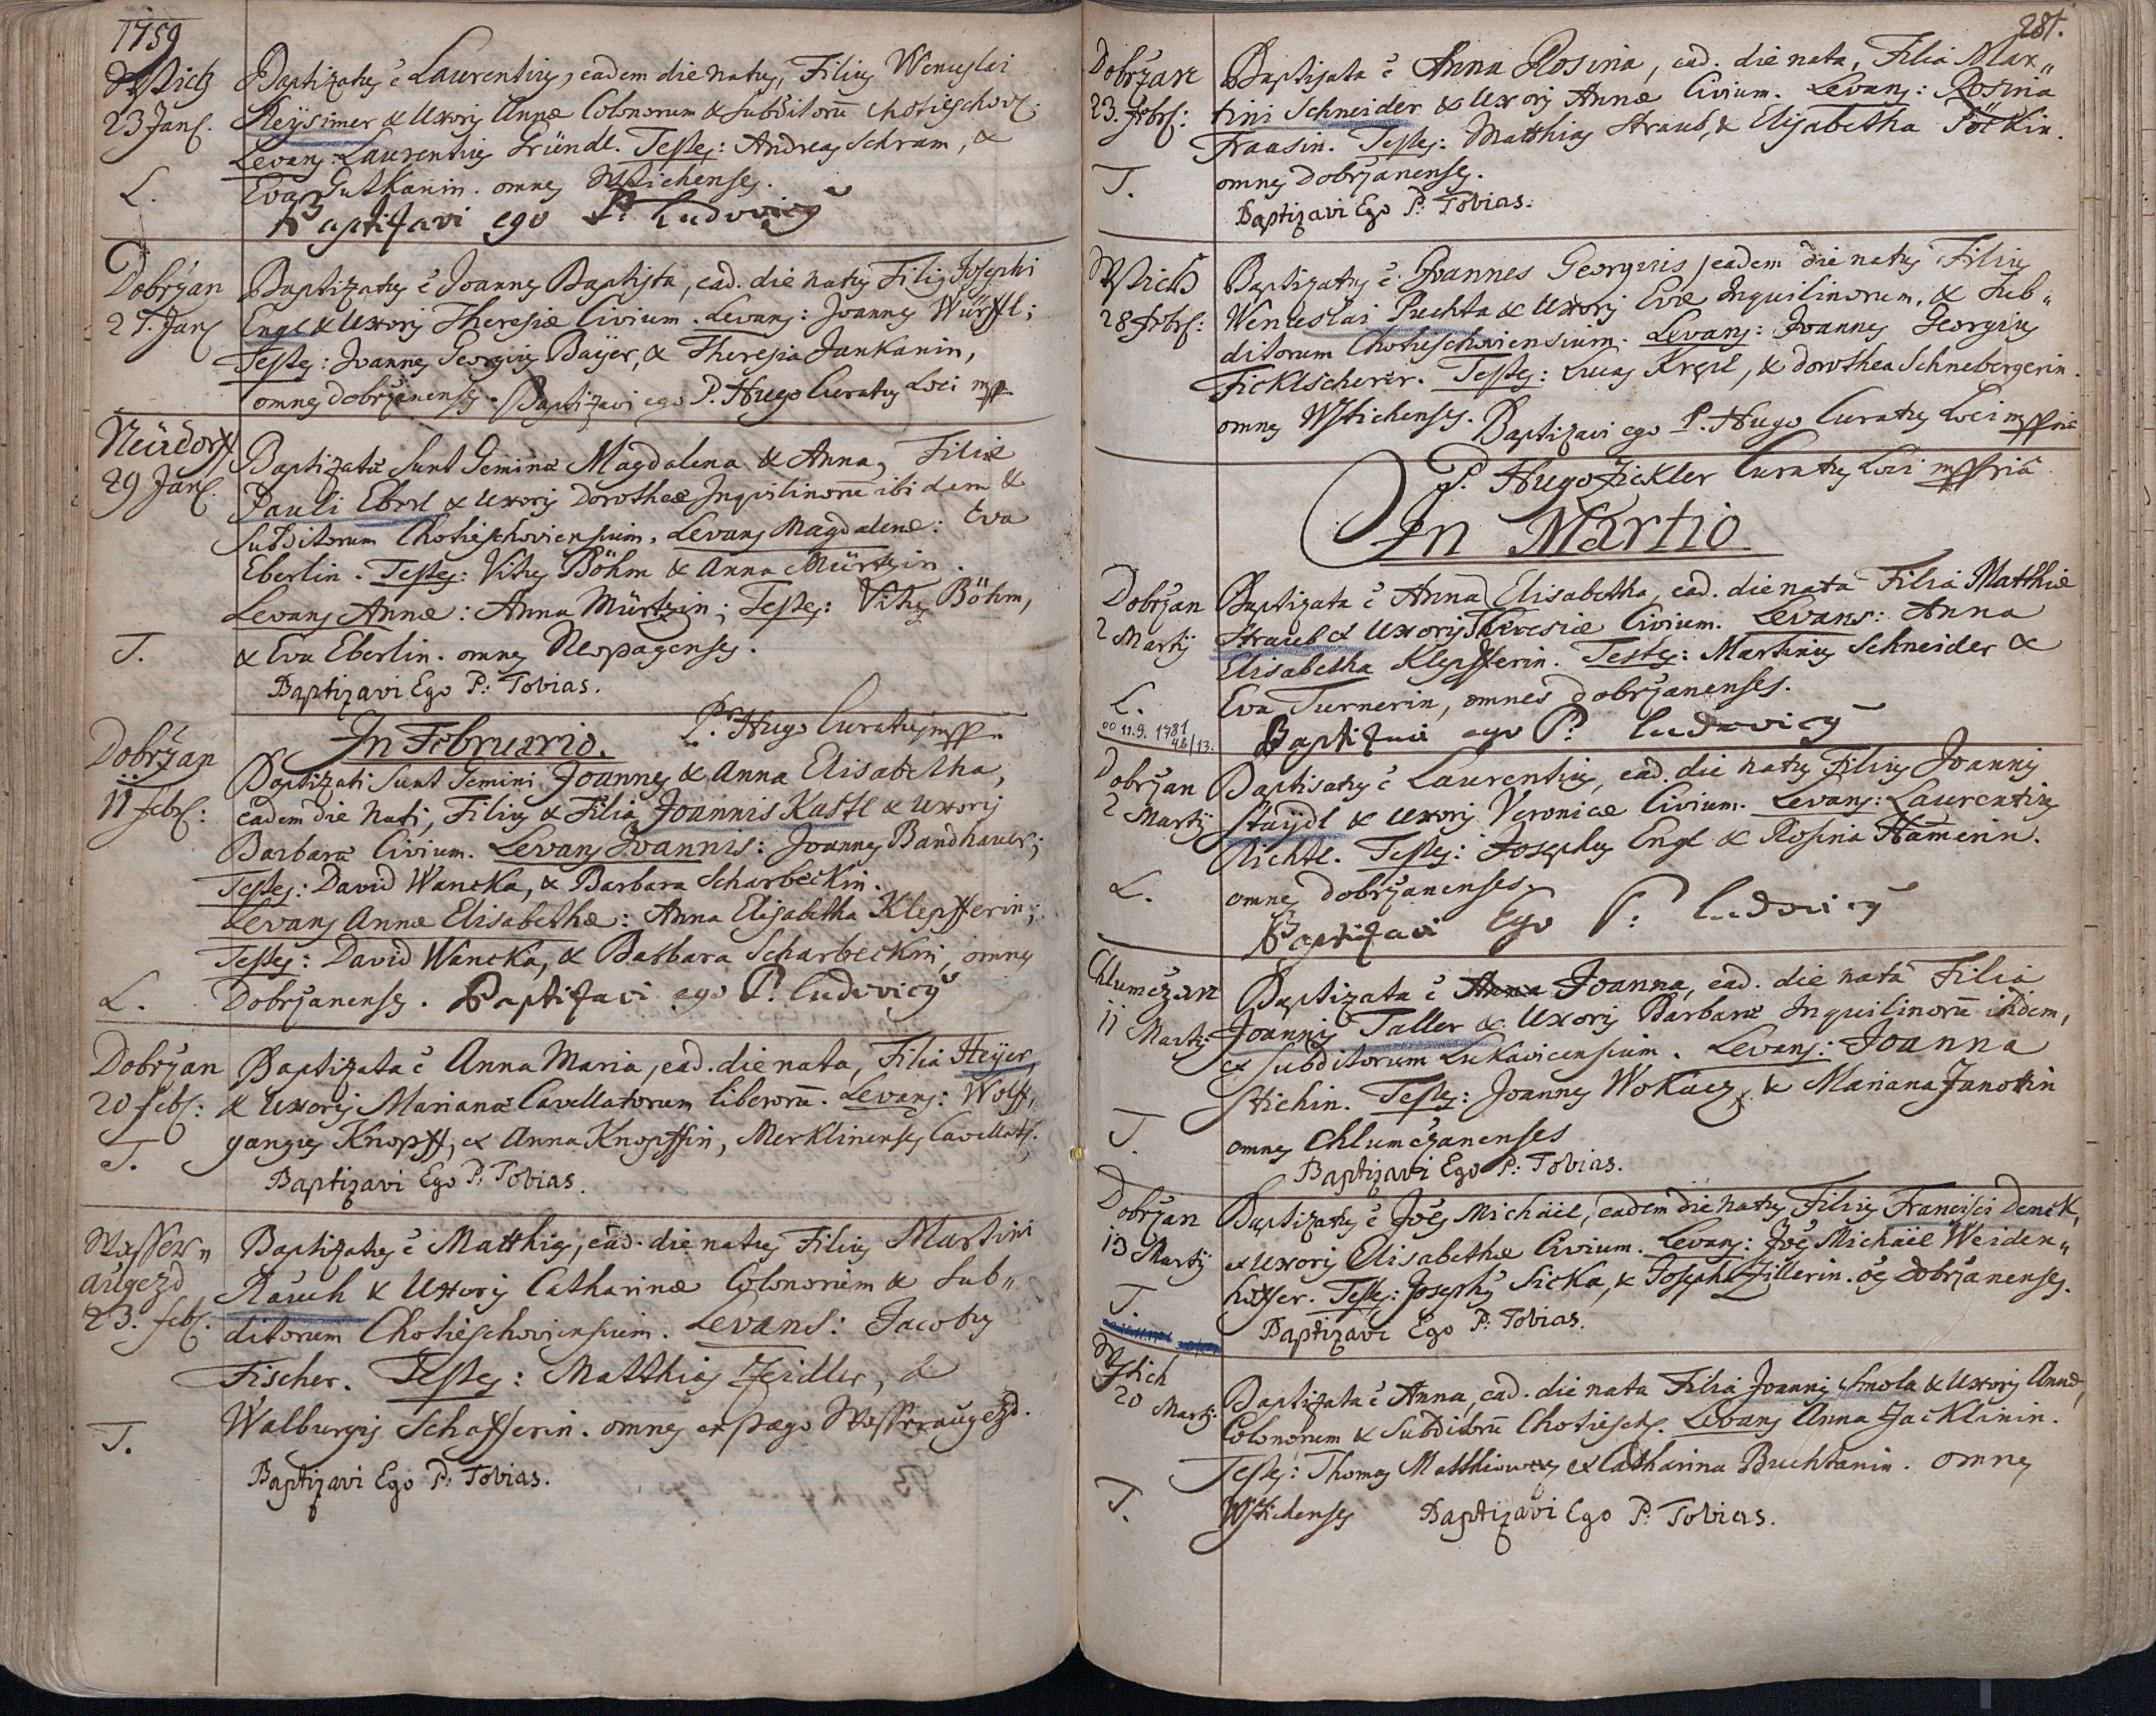 1759
Wstich
23 Jan.
L.
Baptizatus ē Laurentius, eadem die natus, Filius Wenceslai
Reÿsimer & Uxoris Annæ Colonorum & Subditorū Chotieschov:
Levans: Laurentius Gründl. Testes: Andreas Schram, &
Eva Gutkanin. omnes Wstichenses.
Baptizavi ego P. Ludovicus
Dobrzan
27. Jan
Baptizatus ē Joannes Baptista, ead. die natus Filius Josephi
Engl & Uxoris Theresiæ Civium. Levans: Joannes Würffl;
Testes: Joannes Georgius Baÿer, & Theresia Jankanin,
omnes dobrzanenses. Baptizavi ego P. Hugo Curatus Loci mpp
Neüdorff
29 Jan.
T.
Baptizatæ Sunt Geminæ Magdalena & Anna, Filiæ
Pauli Eberl & Uxoris Dorotheæ Inquilinorū ibidem &
Subditorum Chotieschoviensium. Levans Magdalenæ: Eva
Eberlin. Testes: Vitus Böhm & Anna Mürtzin.
Levans Annæ: Anna Mürtzin; Testes: Vitus Böhm,
& Eva Eberlin. omnes Neopagenses.
Baptizavi Ego P: Tobias.
P. Hugo Curatus mpp
In Februario.
Dobrzan
11 febr:
L.
Baptizati Sunt Gemini Joannes & Anna Elisabetha,
eadem die Nati, Filius & Filia Joannis Kastl & uxoris
Barbaræ Civium. Levans Joannis: Joannes Bandhauer;
Testes: David Wancka, & Barbara Scharbeckin.
Levans Annæ Elisabethæ: Anna Elisabetha Klepfferin;
Testes: David Wancka, & Barbara Scharbeckin, omnes
Dobrzanenses. Baptizavi ego P. Ludovicus
Dobrzan
20 feb:
T.
Baptizata ē Anna Maria, ead. die nata, Filia Heÿer,
& Uxoris Marianæ Cavellatorum liberorū. Levans: Wolff„
gangus Knopff, & Anna Knopffin, Merklinenses Cavellat.
Baptizavi Ego P: Tobias.
Wasser„
augezd
23. feb.
T.
Baptizatus ē Matthias, ead. die natus Filius Martini
Rauch & Uxoris Catharinæ Colonorum & Sub„
ditorum Chotieschoviensium. Levans: Jacobus
Fischer. Testes: Matthias Zeidler, &
Walburgis Schafferin. omnes ex pago Wasseraugezd.
Baptizavi Ego P: Tobias.
281.
Dobrzan
23. febr:
T.
Baptizata ē Anna Rosina, ead. die nata, Filia Mar„
tini Schneider & Uxoris Annæ Civium. Levans: Rosina
Fraasin. Testes: Matthias Straub, & Elisabetha Pöckin.
omnes Dobrzanenses.
Baptizavi Ego P: Tobias.
Wstich
28 febr:
Baptizatus ē Joannes Georgius eadem die natus Filius
Wenceslai Puchta & Uxoris Evæ Inquilinorum, & Sub„
ditorum Chotieschoviensium. Levans: Joannes Georgius
Ficktscherer. Testes: Lucas Kregl, & dorothea Schnebergerin.
omnes Wstichenses. Baptizavi ego P. Hugo Curatus Loci mppria
P. Hugo Zickler Curatus Loci mppria
In Martio
Dobrzan
2 Martÿ
L.
∞ 11.9. 1781
46/13.
Baptizata ē Anna Elisabetha, ead. die nata Filia Matthiæ
Straub & Uxoris Theresiæ Civium. Levans: Anna
Elisabetha Klepfferin. Testes: Martinus Schneider &
Eva Turnerin, omnes dobrzanenses.
Baptizavi ego P: Ludovicus
Dobrzan
2 Martÿ
L.
Baptisatus ē Laurentius, ead. die natus Filius Joannis
Staÿdl & Uxoris Veronicæ Civium. Levans: Laurentius
Richtl. Testes: Josephus Engl & Rosina Hamerin.
omnes dobrzanenses.
Baptizavi Ego P: Ludovicus
Chlumczan
11 Martÿ
T.
Baptizata ē Joanna, ead. die nata Filia
Joannis Taller & Uxoris Barbaræ Inquilinorū ibidem,
& Subditorum Lukavicensium. Levans: Joanna
Stichin. Testes: Joannes Wokacz, & Mariana Janotkin
omnes Chlumczanenses
Baptizavi Ego P: Tobias.
Dobrzan
13 Martÿ
T.
Baptizatus ē Joēs Michäel, eadem die natus, Filius Francisci Denck,
& Uxoris Elisabethæ Civium. Levans: Joēs Michäel Weiden„
hoffer. Testes: Josephus Sicka, & Josepha Zillerin. oēs Dobrzanenses.
Baptizavi Ego P: Tobias.
Wstich
20 Marti
T.
Baptizata ē Anna, ead. die nata Filia Joannis Smola & Uxoris Annæ,
Colonorum & Subditorū Chotiesch. Levans Anna Jacklinin.
Testes: Thomas Matthiowetz & Catharina Buchtanin. omnes
Wstichenses Baptizavi Ego P: Tobias.